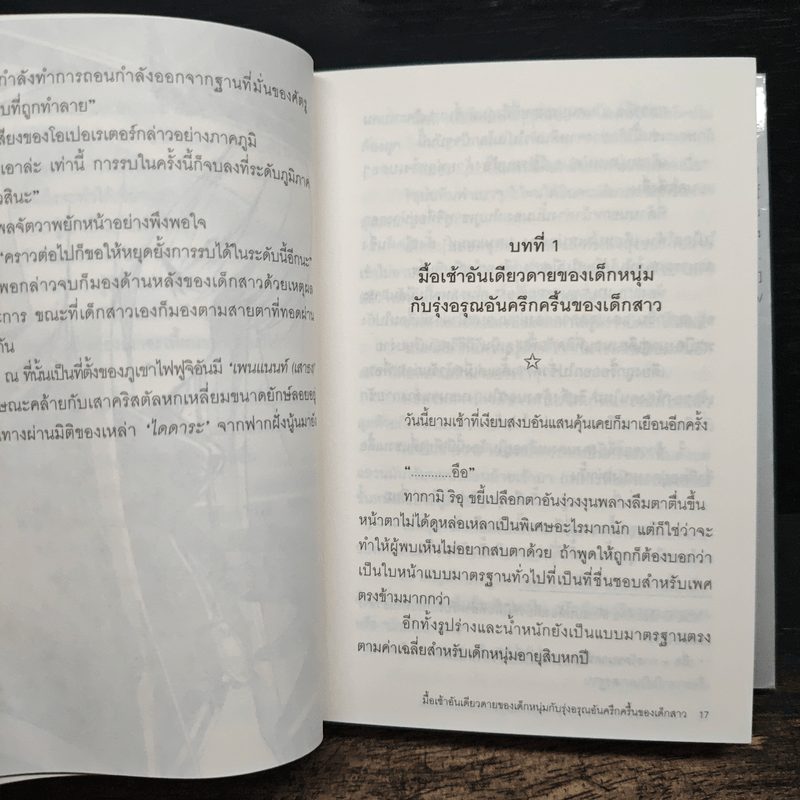 กำลังทำการถอนกำลังออกจากฐานที่มั่นของศัตรู
บที่ถูกทำลาย”
สียงของโอเปอเรเตอร์กล่าวอย่างภาคภูมิ
เอาล่ะ เท่านี้ การรบในครั้งนี้ก็จบลงที่ระดับภูมิภาค
วสินะ”
พลจัตวาพยักหน้าอย่างพึงพอใจ
“คราวต่อไปก็ขอให้หยุดยั้งการรบได้ในระดับนี้อีกนะ”
พอกล่าวจบก็มองด้านหลังของเด็กสาวด้วยเหตุผล
ะการ ขณะที่เด็กสาวเองก็มองตามสายตาที่ทอดผ่าน
กัน
ณ ที่นั้นเป็นที่ตั้งของภูเขาไฟฟูจิอันมี ‘เพนแนนท์ (เสาธง
ษณะคล้ายกับเสาคริสตัลหกเหลี่ยมขนาดยักษ์ลอยอยู่
ทางผ่านมิติของเหล่า ‘ไดดาระ’ จากฟากฝั่งนู้นมายัง
บทที่ 1
มื้อเช้าอันเดียวดายของเด็กหนุ่ม
กับรุ่งอรุณอันครึกครื้นของเด็กสาว
☆
วันนี้ยามเช้าที่เงียบสงบอันแสนคุ้นเคยก็มาเยือนอีกครั้ง
“............อือ”
ทากามิ ริอุ ขยี้เปลือกตาอันง่วงงุนพลางลืมตาตื่นขึ้น
หน้าตาไม่ได้ดูหล่อเหลาเป็นพิเศษอะไรมากนัก แต่ก็ใช่ว่าจะ
ทำให้ผู้พบเห็นไม่อยากสบตาด้วย ถ้าพูดให้ถูกก็ต้องบอกว่า
เป็นใบหน้าแบบมาตรฐานทั่วไปที่เป็นที่ชื่นชอบสำหรับเพศ
ตรงข้ามมากกว่า
อีกทั้งรูปร่างและน้ำหนักยังเป็นแบบมาตรฐานตรง
ตามค่าเฉลี่ยสำหรับเด็กหนุ่มอายุสิบหกปี
มื้อเช้าอันเดียวดายของเด็กหนุ่มกับรุ่งอรุณอันครึกครื้นของเด็กสาว 17